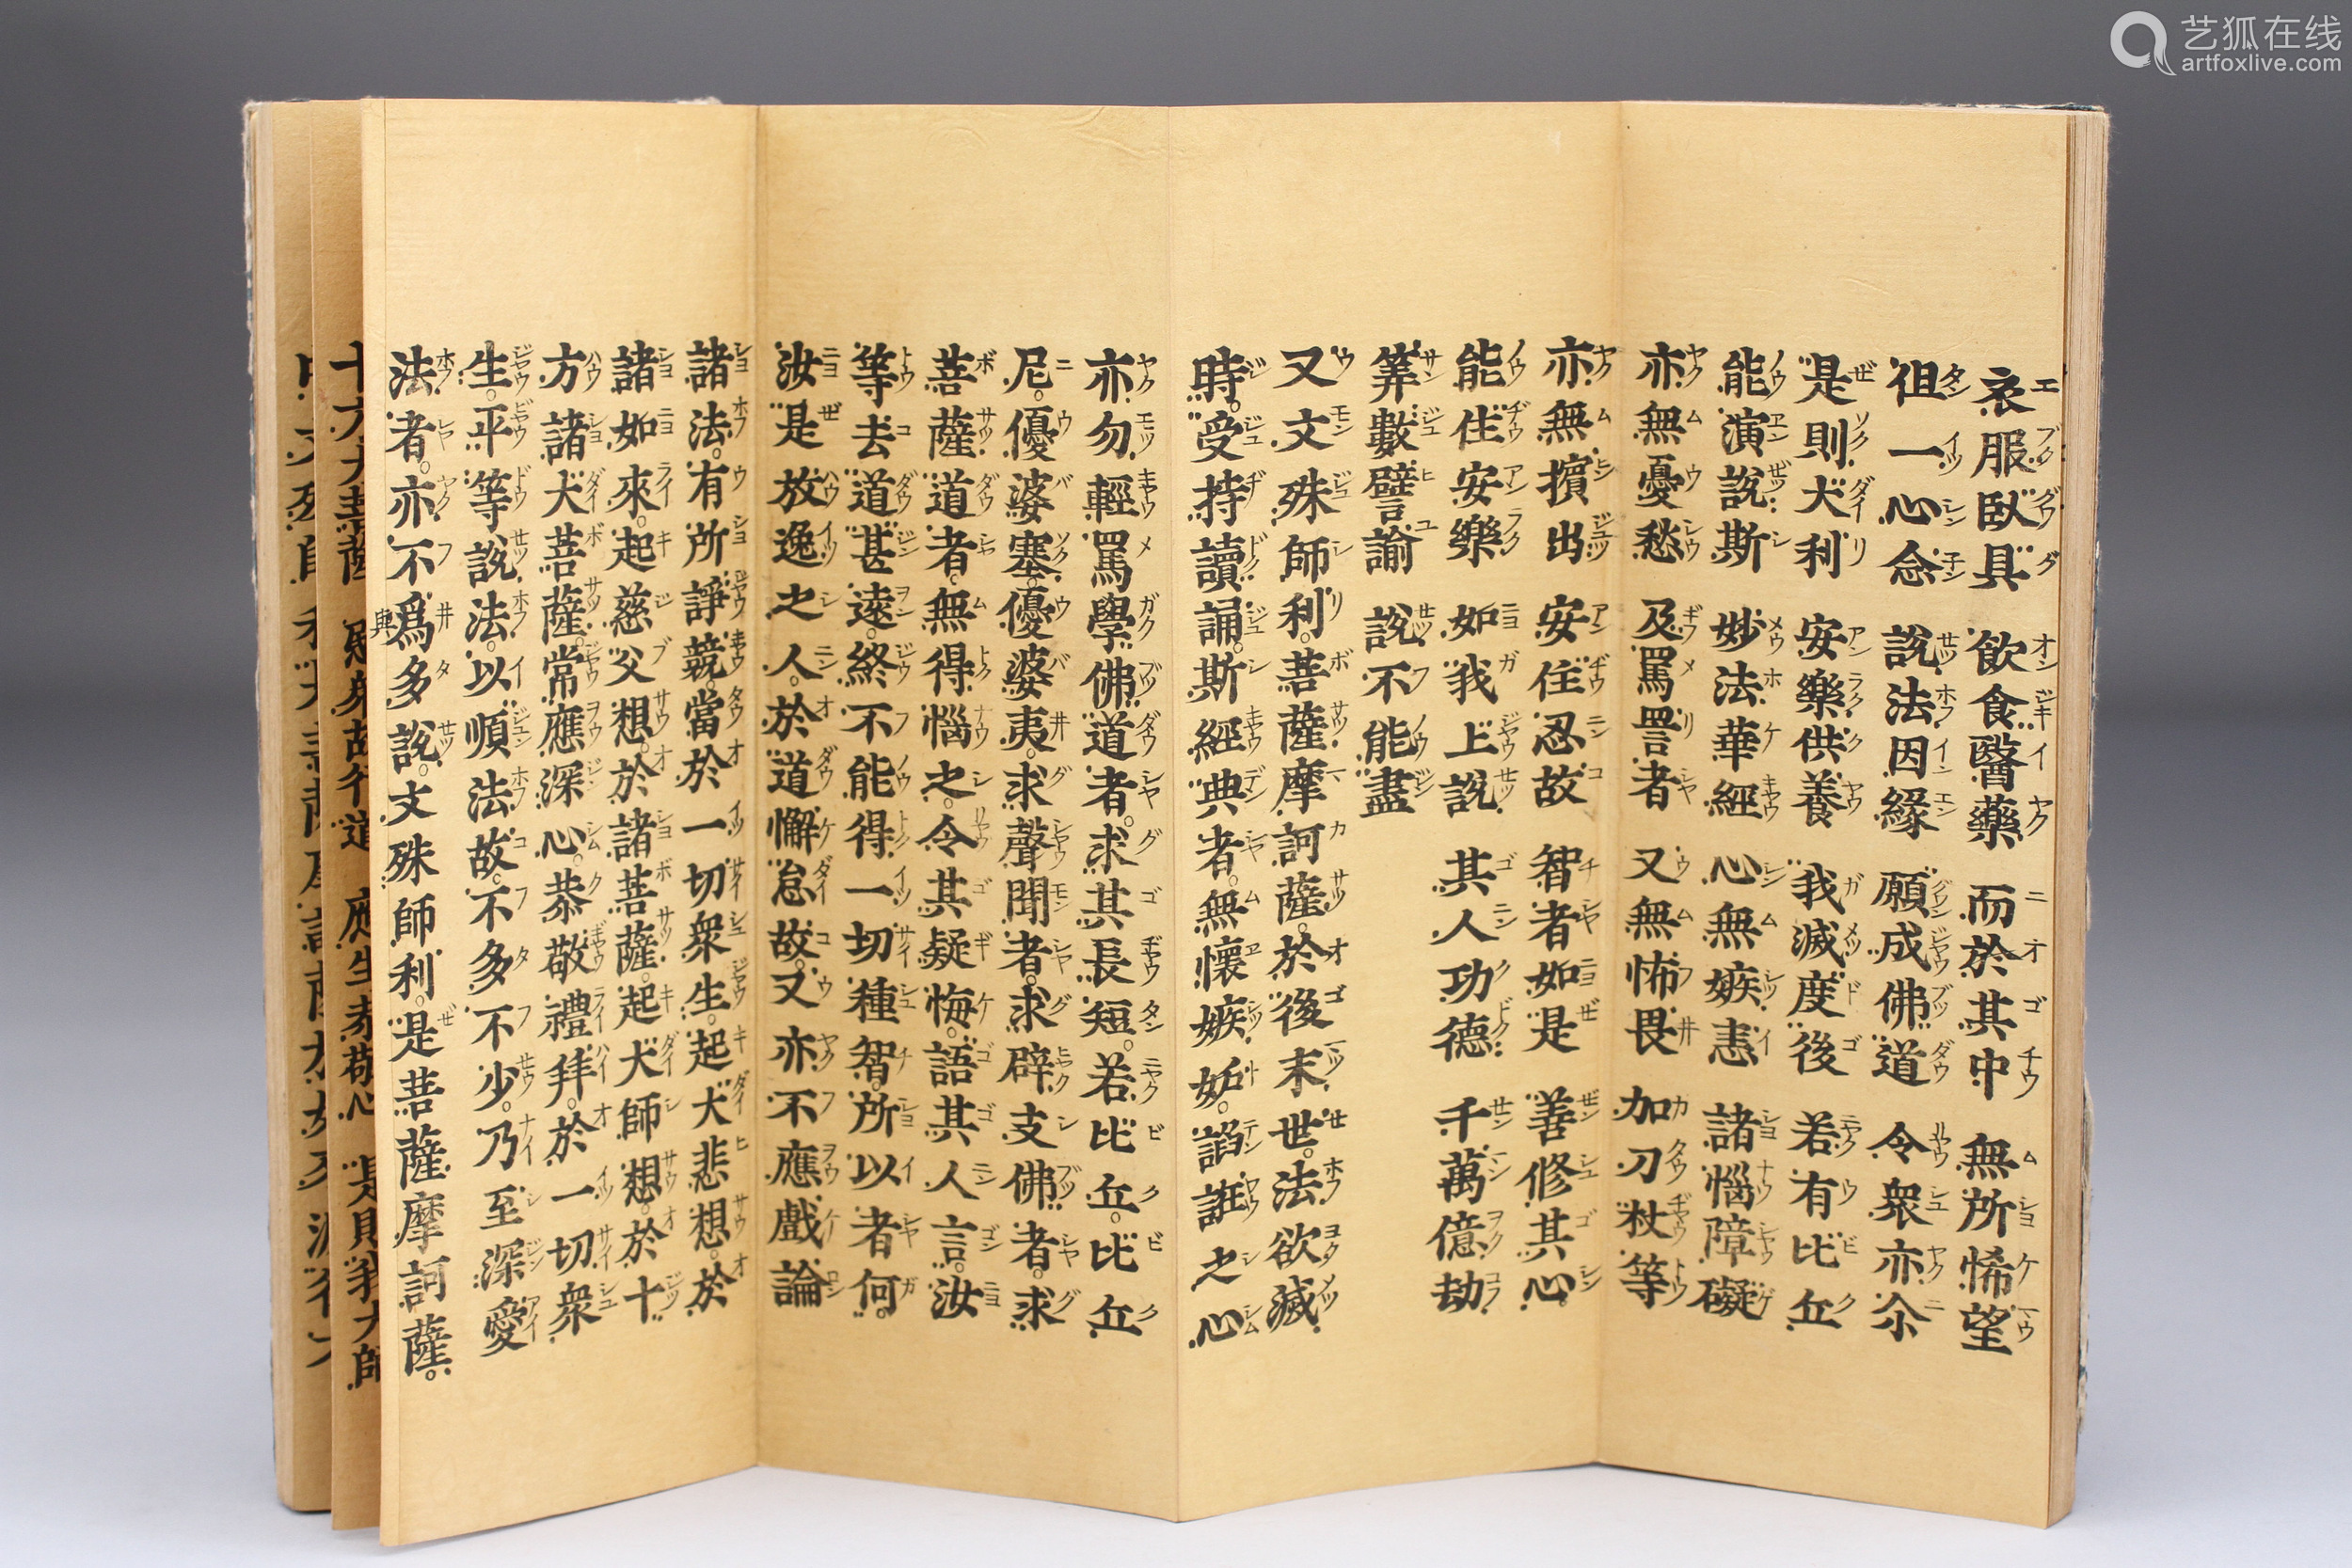 艺狐在线
artfoxlive.com
衣服臥具 飲食醫藥 而於其中 無所悕望
但一心念 說法因緣 願成佛道 令衆亦尒
是則大利 安樂供養 我滅度後 若有比丘
能演說斯 妙法華經 心無嫉恚 諸惱障礙
亦無憂愁 及罵詈者 又無怖畏 加刀杖等
亦無擯出 安住忍故 智者如是 善修其心
能住安樂 如我上說 其人功德 千萬億劫
筭數譬諭 說不能盡
又文殊師利。菩薩摩訶薩。於後末世。法欲滅
時。受持讀誦。斯經典者。無懷嫉妬。諂誑之心
亦勿輕罵學佛道者。求其長短。若比丘。比丘
尼。優婆塞。優婆夷。求聲聞者。求辟支佛者。求
菩薩道者。無得惱之。令其疑悔。語其人言。汝
等去道甚遠。終不能得一切種智。所以者何。
汝是放逸之人。於道懈怠故。又亦不應戲論
諸法。有所諍競。當於一切衆生。起大悲想。於
諸如來。起慈父想。於諸菩薩。起大師想。於十
方諸大菩薩。常應深心。恭敬禮拜。於一切衆
生。平等說法。以順法故。不多不少。乃至深愛
法者。亦不爲多說。文殊師利。是菩薩摩訶薩。
與
十方大菩薩 愍衆故行道 應生恭敬心 是則我大師